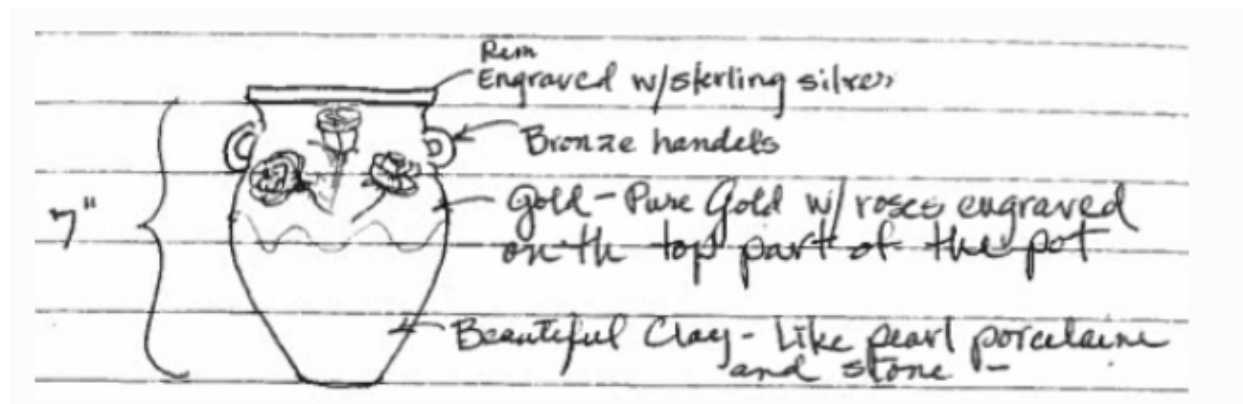 Rim
Engraved w/sterling silver
Bronze handels
7"
Gold - Pure Gold w/ roses engraved
on th top part of the pot
Beautiful Clay - Like pearl porcelaine
and stone -